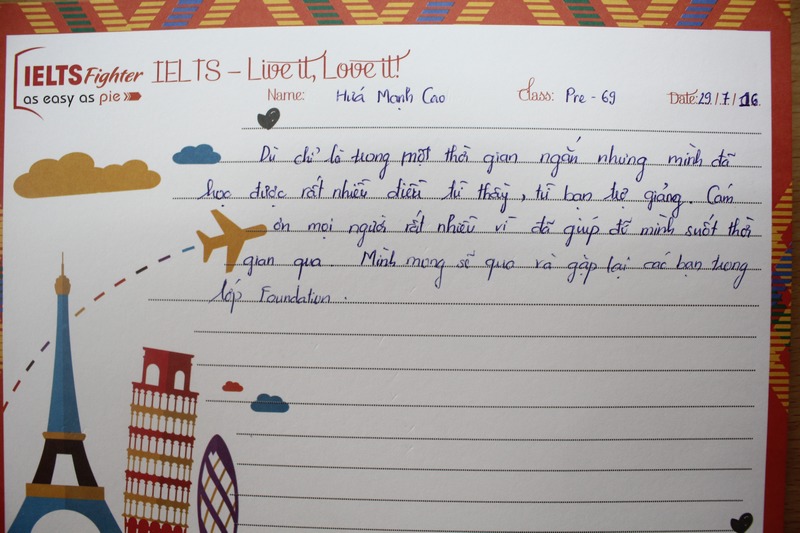 IELTS Fighter
as easy as pie
IELTS – Live it, Love it!
Name: Hứa Mạnh Cao Class: Pre - 69 Date: 29/7/16.
Dù chỉ là trong một thời gian ngắn nhưng mình đã
học được rất nhiều điều từ thầy, từ bạn trợ giảng. Cám
ơn mọi người rất nhiều vì đã giúp đỡ mình suốt thời
gian qua. Mình mong sẽ qua và gặp lại các bạn trong
lớp Foundation.